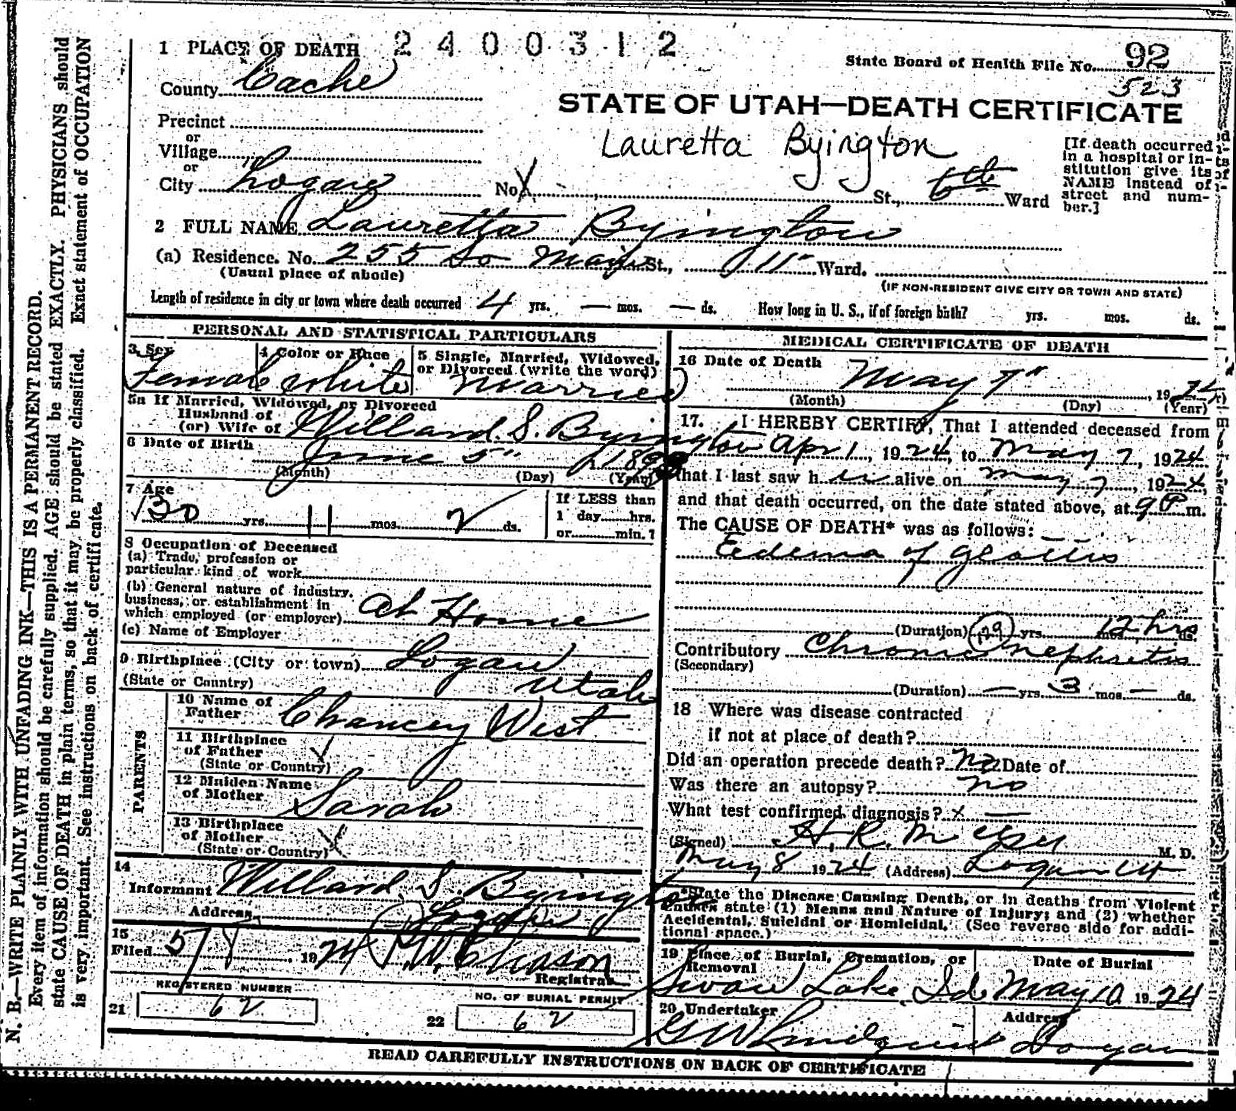 1 PLACE OF DEATH 2400312
State Board of Health File No. 92
523
County Cache
STATE OF UTAH—DEATH CERTIFICATE
Precinct
or
Village
or
City Logan No. St., 6th Ward
Lauretta Byington
[If death occurred
in a hospital or in-
stitution give its
NAME instead of
street and num-
ber.]
2 FULL NAME Lauretta Byington
(a) Residence. No. 255 So Main St., 11" Ward.
(Usual place of abode)
(IF NON-RESIDENT GIVE CITY OR TOWN AND STATE)
Length of residence in city or town where death occurred 4 yrs. — mos. — ds. How long in U. S., if of foreign birth? yrs. mos. ds.
PERSONAL AND STATISTICAL PARTICULARS
3 Sex
Female
4 Color or Race
White
5 Single, Married, Widowed,
or Divorced (write the word)
Married
5a If Married, Widowed, or Divorced
Husband of
(or) Wife of Willard S. Byington
6 Date of Birth June 5"
(Month) (Day) (Year)
7 Age
30 yrs. 11 mos. 2 ds.
If LESS than
1 day hrs.
or min.?
8 Occupation of Deceased
(a) Trade, profession or
particular kind of work
(b) General nature of industry,
business, or establishment in
which employed (or employer) At Home
(c) Name of Employer
9 Birthplace (City or town) Logan
(State or Country) Utah
PARENTS
10 Name of
Father Chancey West
11 Birthplace
of Father
(State or Country)
12 Maiden Name
of Mother Sarah
13 Birthplace
of Mother
(State or Country)
14
Informant Willard S. Byington
Address Logan
15
Filed 5/8 1924
Registrar
REGISTERED NUMBER
21 62
NO. OF BURIAL PERMIT
22 62
MEDICAL CERTIFICATE OF DEATH
16 Date of Death May 7" 1924
(Month) (Day) (Year)
17. I HEREBY CERTIFY, That I attended deceased from
Apr 1, 1924, to May 7, 1924
that I last saw her alive on May 7, 1924
and that death occurred, on the date stated above, at 9 P m.
The CAUSE OF DEATH* was as follows:
Edema of glottis
(Duration) yrs. 12 hrs ds.
Contributory Chronic nephritis
(Secondary)
(Duration) — yrs. 3 mos. — ds.
18 Where was disease contracted
if not at place of death?
Did an operation precede death? no Date of
Was there an autopsy? no
What test confirmed diagnosis? x —
(Signed) H. R. McGee M. D.
May 8 1924 (Address) Logan Ut
*State the Disease Causing Death, or in deaths from Violent
Causes state (1) Means and Nature of Injury; and (2) whether
Accidental, Suicidal or Homicidal. (See reverse side for addi-
tional space.)
19 Place of Burial, Cremation, or
Removal
Swan Lake, Id.
Date of Burial
May 10 1924
20 Undertaker
G W Lindquist
Address
Logan
READ CAREFULLY INSTRUCTIONS ON BACK OF CERTIFICATE
N. B.—WRITE PLAINLY WITH UNFADING INK—THIS IS A PERMANENT RECORD.
Every item of information should be carefully supplied. AGE should be stated EXACTLY. PHYSICIANS should
state CAUSE OF DEATH in plain terms, so that it may be properly classified. Exact statement of OCCUPATION
is very important. See instructions on back of certificate.